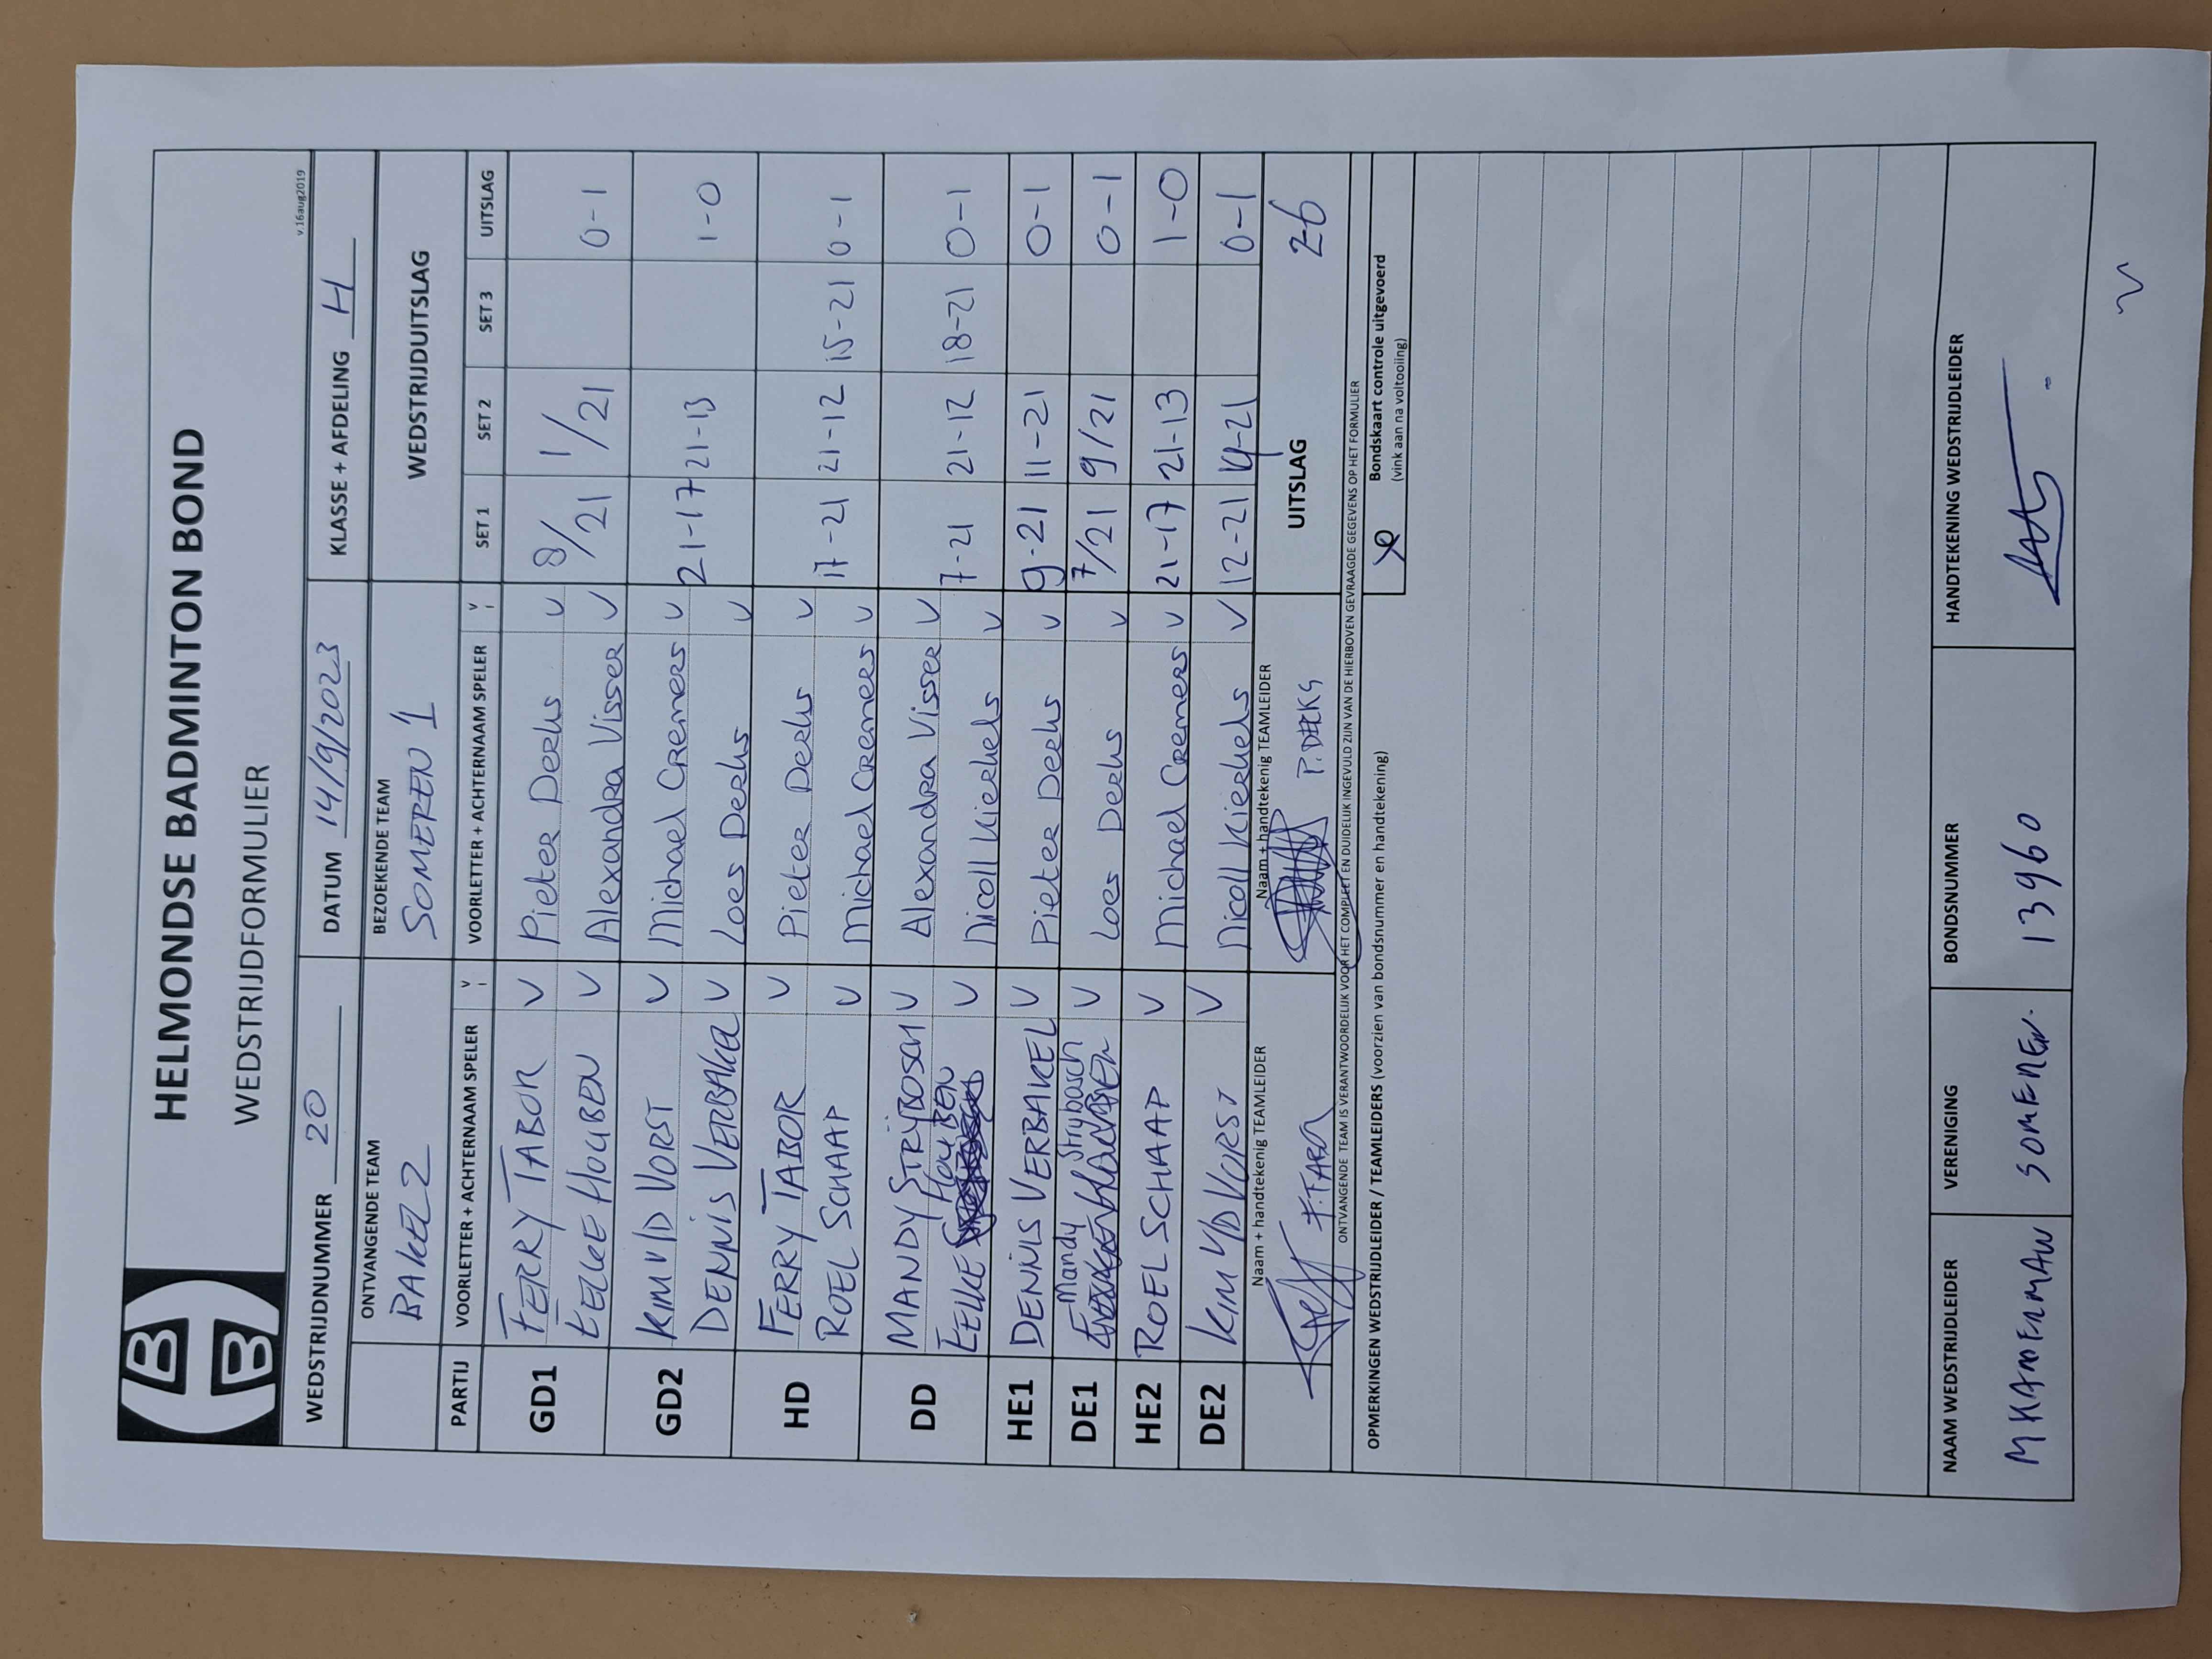 HELMONDSE BADMINTON BOND
WEDSTRIJDFORMULIER
v.16aug2019
WEDSTRIJDNUMMER 20 DATUM 14/9/2023 KLASSE + AFDELING H
ONTVANGENDE TEAM BEZOEKENDE TEAM WEDSTRIJDUITSLAG
BAKEL 2 SOMEREN 1
PARTIJ VOORLETTER + ACHTERNAAM SPELER V VOORLETTER + ACHTERNAAM SPELER V SET 1 SET 2 SET 3 UITSLAG
GD1 FERRY TABOR V Pieter Derks V 8/21 1/21 0-1
EELKE HOUBEN V Alexandra Visser V
GD2 KIM V/D VORST V Michael Cremers V 21-17 21-13 1-0
DENNIS VERBAKEL V Loes Derks V
HD FERRY TABOR V Pieter Derks V 17-21 21-12 15-21 0-1
ROEL SCHAAP V Michael Cremers V
DD MANDY STRIJBOSCH V Alexandra Visser V 7-21 21-12 18-21 0-1
EELKE HOUBEN V Nicoll Kierkels V
HE1 DENNIS VERBAKEL V Pieter Derks V 9-21 11-21 0-1
DE1 Mandy Strybosch V Loes Derks V 7/21 9/21 0-1
HE2 ROEL SCHAAP V Michael Cremers V 21-17 21-13 1-0
DE2 KIM V/D VORST V Nicoll Kierkels V 12-21 14-21 0-1
Naam + handtekenig TEAMLEIDER Naam + handtekenig TEAMLEIDER UITSLAG 2-6
P. DERKS
ONTVANGENDE TEAM IS VERANTWOORDELIJK VOOR HET COMPLEET EN DUIDELIJK INGEVULD ZIJN VAN DE HIERBOVEN GEVRAAGDE GEGEVENS OP HET FORMULIER
OPMERKINGEN WEDSTRIJDLEIDER / TEAMLEIDERS (voorzien van bondsnummer en handtekening)
Bondskaart controle uitgevoerd
(vink aan na voltooiing)
NAAM WEDSTRIJDLEIDER VERENIGING BONDSNUMMER HANDTEKENING WEDSTRIJDLEIDER
SOMEREN. 13960